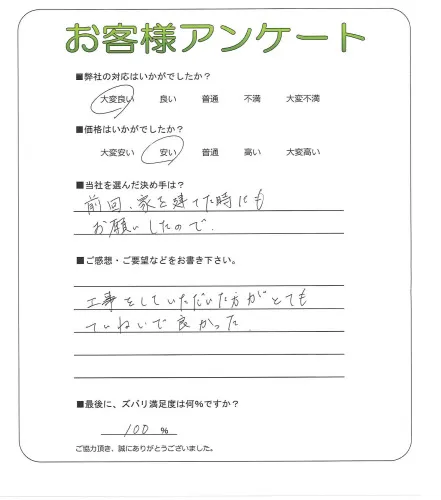 お客様アンケート
■弊社の対応はいかがでしたか？
大変良い 良い 普通 不満 大変不満
■価格はいかがでしたか？
大変安い 安い 普通 高い 大変高い
■当社を選んだ決め手は？
前回、家を建てた時にも
お願いしたので、
■ご感想・ご要望などをお書き下さい。
工事をしていただいた方がとても
ていねいで良かった
■最後に、ズバリ満足度は何%ですか？
100 %
ご協力頂き、誠にありがとうございました。